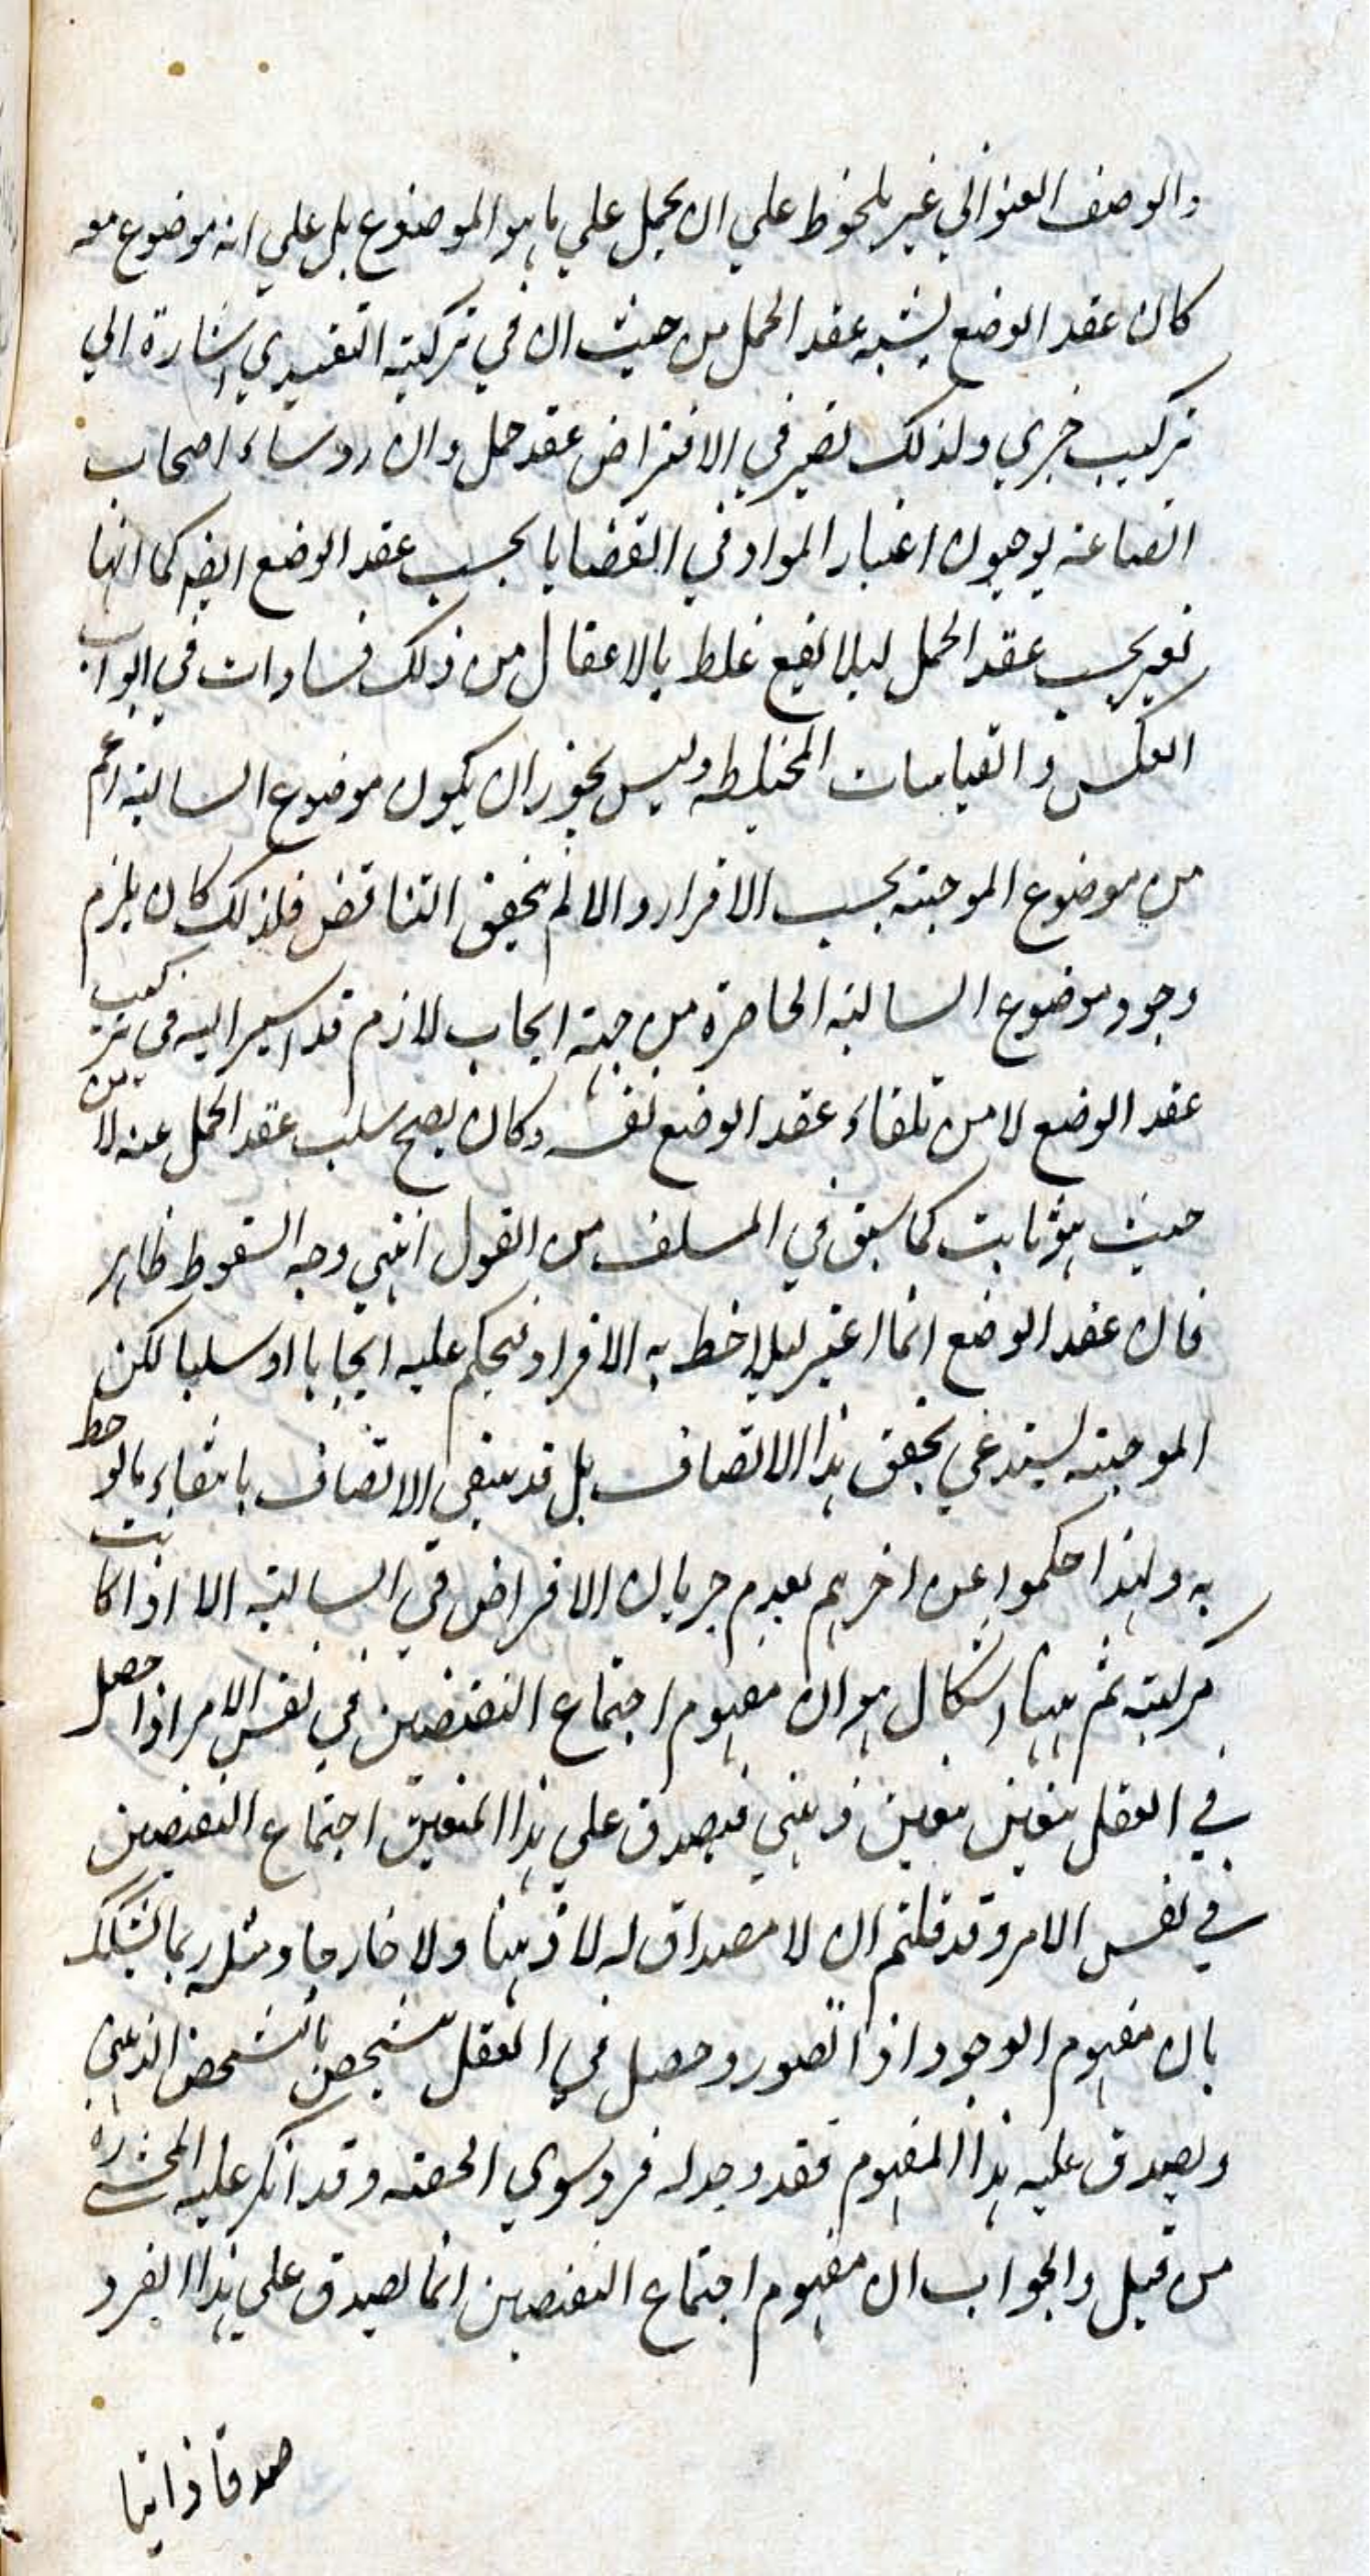 والوصف العنواني غير ملحوظ علي ان يحمل علي ما هو الموضوع بل علي انه موضوع معه
كان عقد الوضع يشبه عقد الحمل من حيث ان في تركيبه التقييدي اشارة الي
تركيب خبري ولذلك تصير في الافتراض عقد حمل وان روساء اصحاب
الصناعة يوجبون اعتبار المواد في القضايا بحسب عقد الوضع ايضا كما انها
تعتبر بحسب عقد الحمل ليلا يقع غلط بالاغفال من ذلك فسادات في ابواب
العكس والقياسات المختلطه وليس يجوز ان يكون موضوع السالبة اعم
من موضوع الموجبة بحسب الافراد والا لم يتحقق التناقض فلذلك كان يلزم
وجود موضوع السالبة الحاصرة من جهة ايجاب لازم قد اشير اليه في تركيب
عقد الوضع لا من تلقاء عقد الوضع نفسه وكان يصح سلب عقد الحمل عنه لا من
حيث هو ثابت كما سبق في السلف من القول انتهي وجه السقوط ظاهر
فان عقد الوضع انما اعتبر ليلاحظ به الافراد فيحكم عليه ايجابا او سلبا لكن
الموجبة يستدعي تحقق هذا الاتصاف بل قد ينتفي الاتصاف بانتفاء مالوحظ
به ولهذا حكموا عن اخرهم بعدم جريان الافتراض في السالبة الا اذا كانت
مركبة ثم ههنا اشكال هو ان مفهوم اجتماع النقيضين في نفس الامر اذا حصل
في العقل يتعين بتعين ذهني فيصدق علي هذا المتعين اجتماع النقيضين
في نفس الامر وقد قلتم ان لا مصداق له لا ذهنا ولا خارجا ومثله ربما يتشكك
بان مفهوم الوجود اذا تصور وحصل في العقل يتشخص بالتشخص الذهني
ويصدق عليه هذا المفهوم فقد وجد له فرد سوي الحصة وقد انكر عليه المحشي ره
من قبل والجواب ان مفهوم اجتماع النقيضين انما يصدق علي هذا الفرد
صدقا ذاتيا